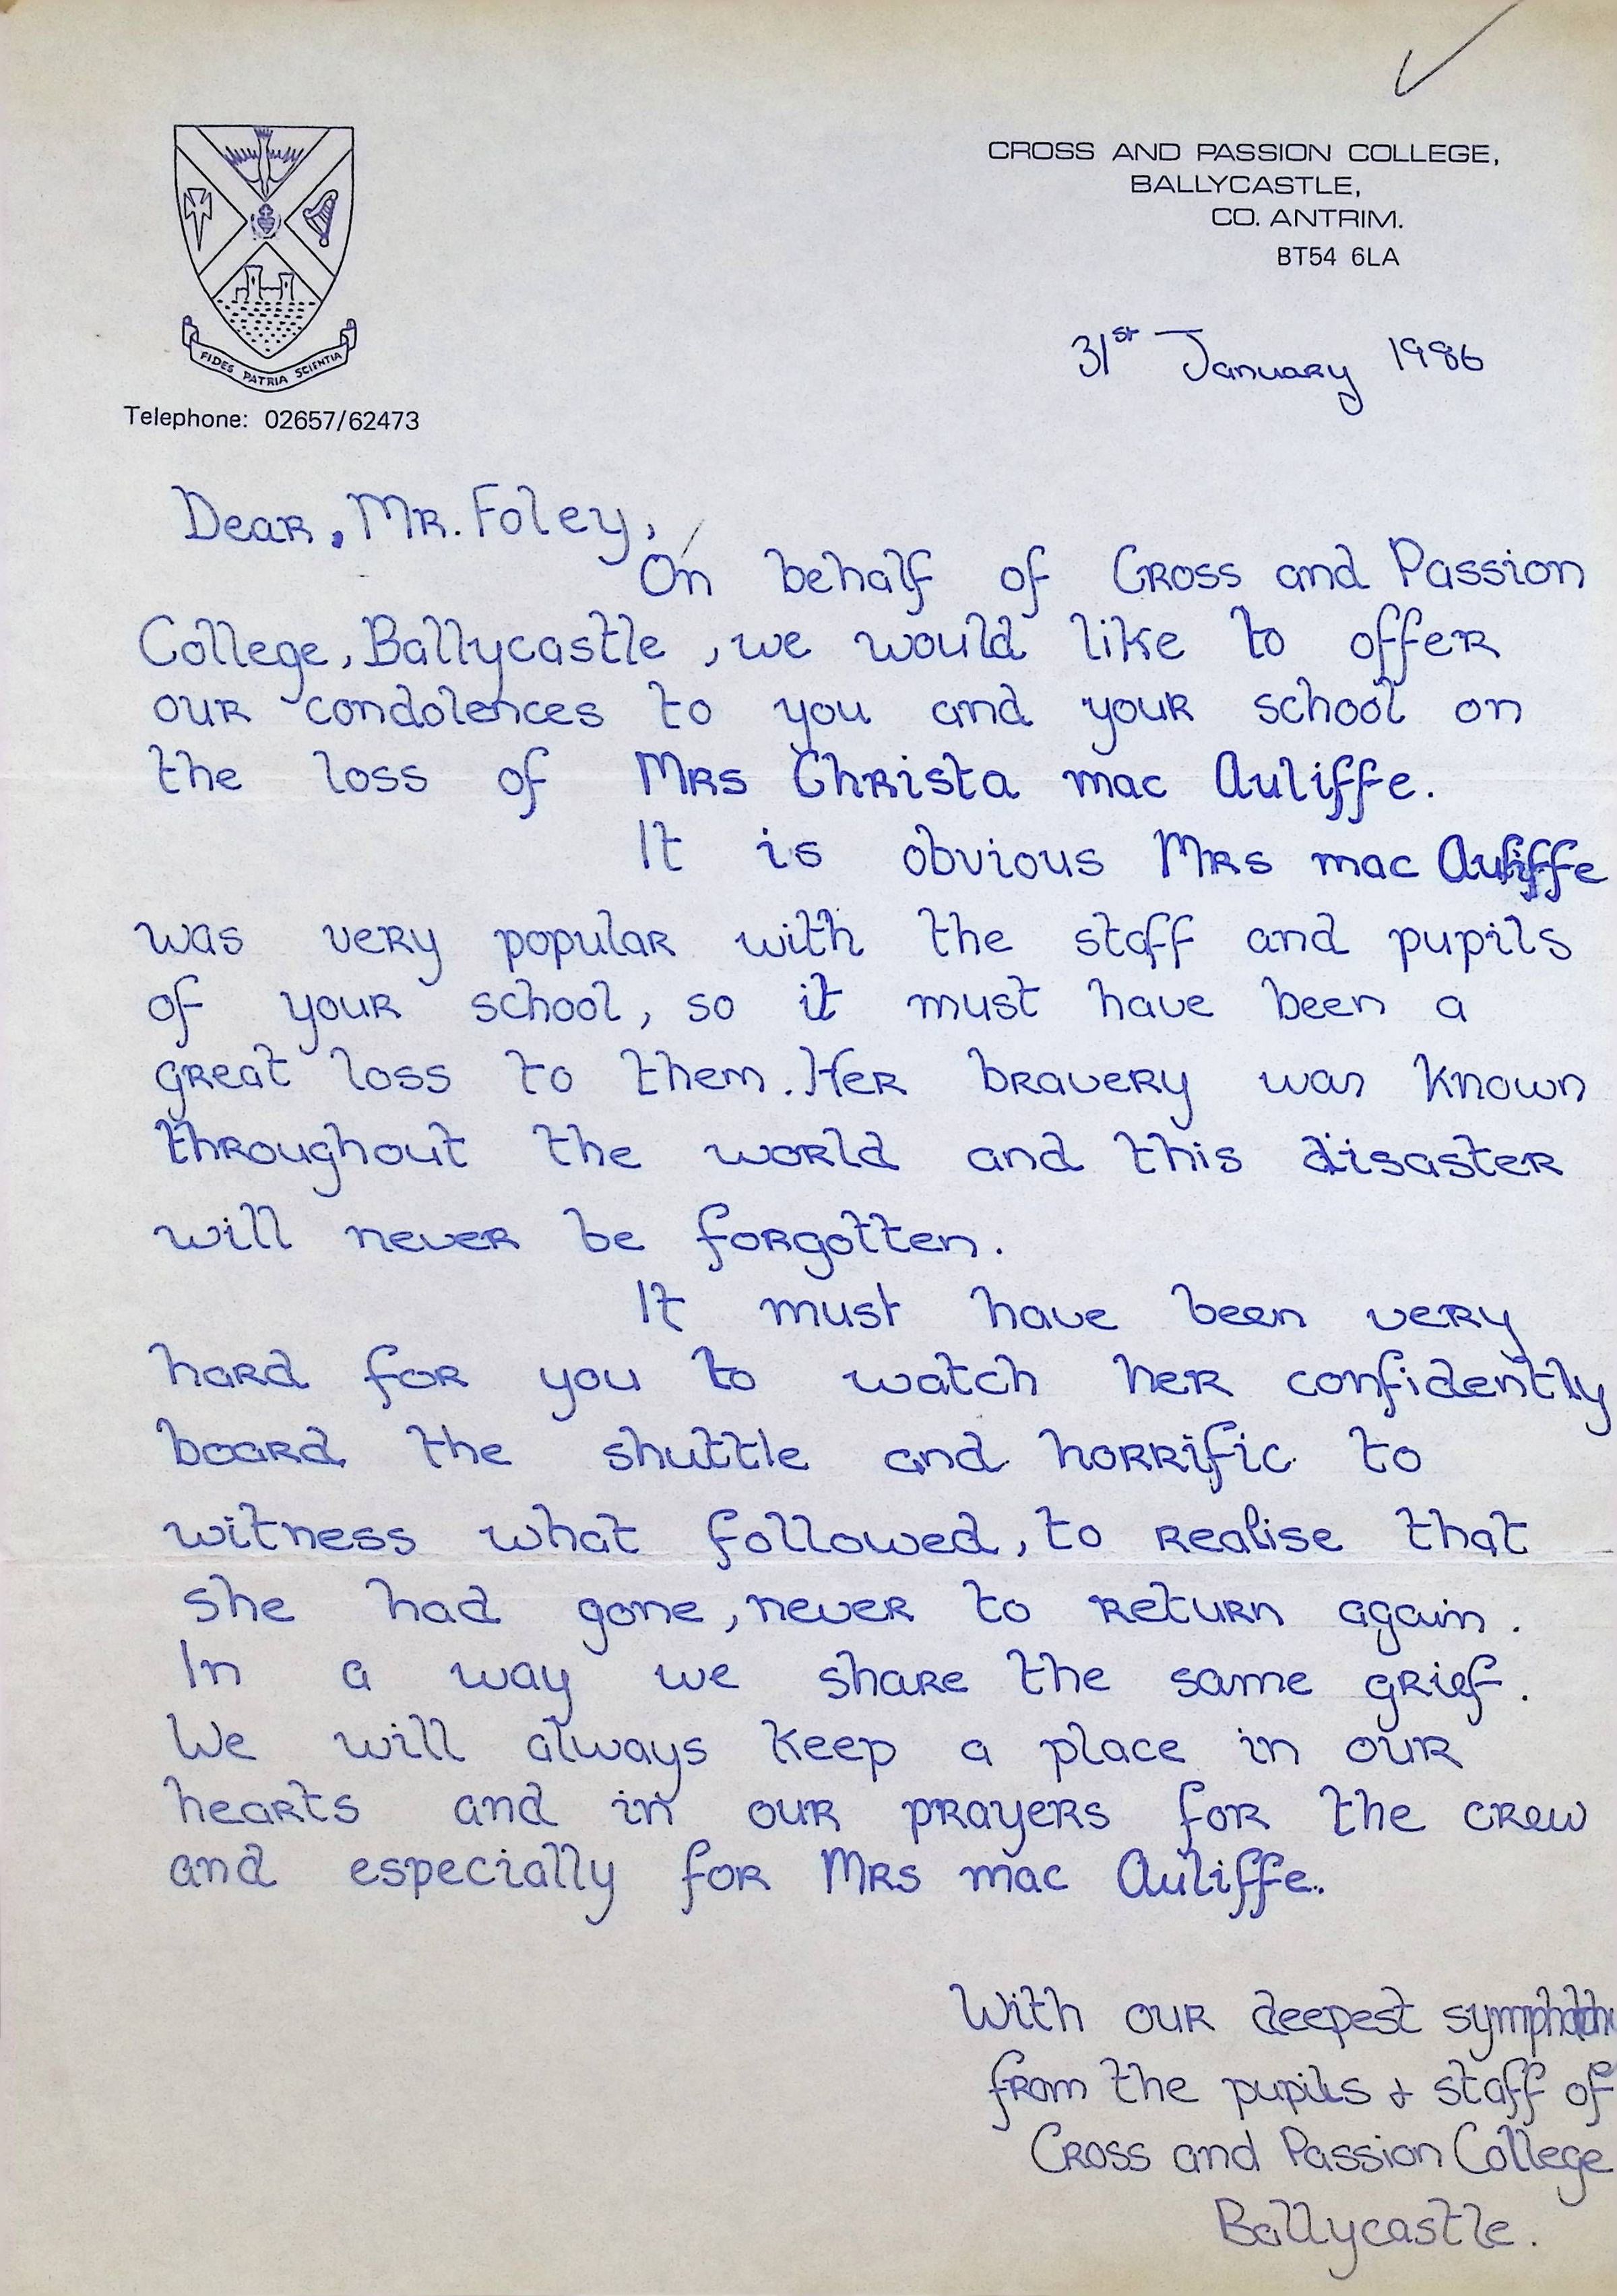 CROSS AND PASSION COLLEGE,
BALLYCASTLE,
CO. ANTRIM.
BT54 6LA
FIDES PATRIA SCIENTIA
Telephone: 02657/62473
31st January 1986
Dear, Mr. Foley,
On behalf of Cross and Passion
College, Ballycastle, we would like to offer
our condolences to you and your school on
the loss of Mrs Christa mac Auliffe.
It is obvious Mrs mac Auliffe
was very popular with the staff and pupils
of your school, so it must have been a
great loss to them. Her bravery was known
throughout the world and this disaster
will never be forgotten.
It must have been very
hard for you to watch her confidently
board the shuttle and horrific to
witness what followed, to realise that
she had gone, never to return again.
In a way we share the same grief.
We will always keep a place in our
hearts and in our prayers for the crew
and especially for Mrs mac Auliffe.
With our deepest
from the pupils & staff of
Cross and Passion College
Ballycastle.